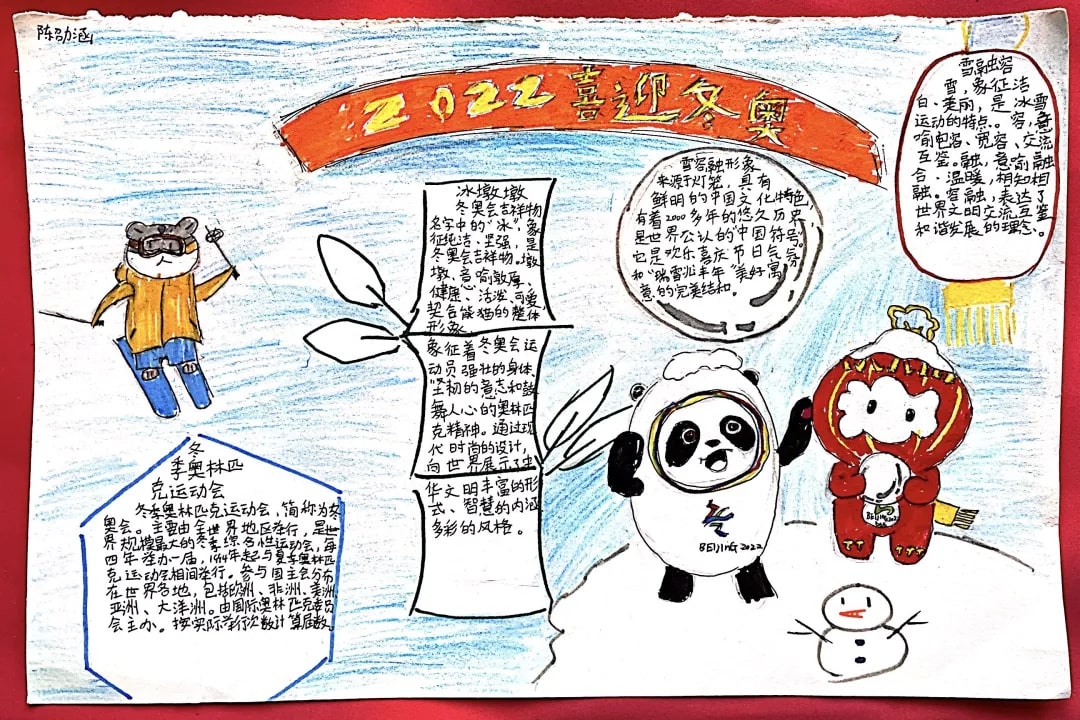 陈劭涵
2022喜迎冬奥
雪融容
雪，象征洁
白、美丽，是冰雪
运动的特点。容，意
喻包容、宽容、交流
互鉴。融，意喻融
合、温暖，相知相
融。容融，表达了
世界文明交流互鉴
和谐发展的理念。
雪容融形象
来源于灯笼，具有
鲜明的中国文化特色，
有着2000多年的悠久历史，
是世界公认的"中国符号"。
它是欢乐喜庆节日气氛
和"瑞雪兆丰年"美好寓
意的完美结和。
冰墩墩
冬奥会吉祥物
名字中的"冰"，象
征纯洁、坚强，是
冬奥会吉祥物。墩
墩，意喻敦厚、
健康、活泼、可爱，
契合熊猫的整体
形象
象征着冬奥会运
动员强壮的身体、
坚韧的意志和鼓
舞人心的奥林匹
克精神。通过现
代时尚的设计，
向世界展示了中
华文明丰富的形
式、智慧的内涵
多彩的风格。
冬
季奥林匹
克运动会
冬季奥林匹克运动会，简称为冬
奥会。主要由全世界地区举行，是世
界规模最大的冬季综合性运动会，每
四年举办一届，1994年起与夏季奥林匹
克运动会相间举行。参与国主会分布
在世界各地，包括欧洲、非洲、美洲、
亚洲、大洋洲。由国际奥林匹克委员
会主办。按实际举行次数计算届数
BEIJING 2022
BEIJING 2022